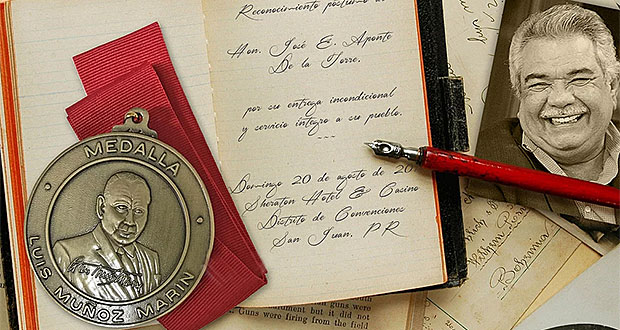 Reconocimiento póstumo al
Hon. José E. Aponte
De la Torre,
por su entrega incondicional
y servicio íntegro a su pueblo.
~~~
Domingo 20 de agosto de 20
Sheraton Hotel & Casino
Distrito de Convenciones
San Juan, P.R.
MEDALLA
LUIS MUÑOZ MARIN
Bohemma
but it did not
Guns were firing from the field